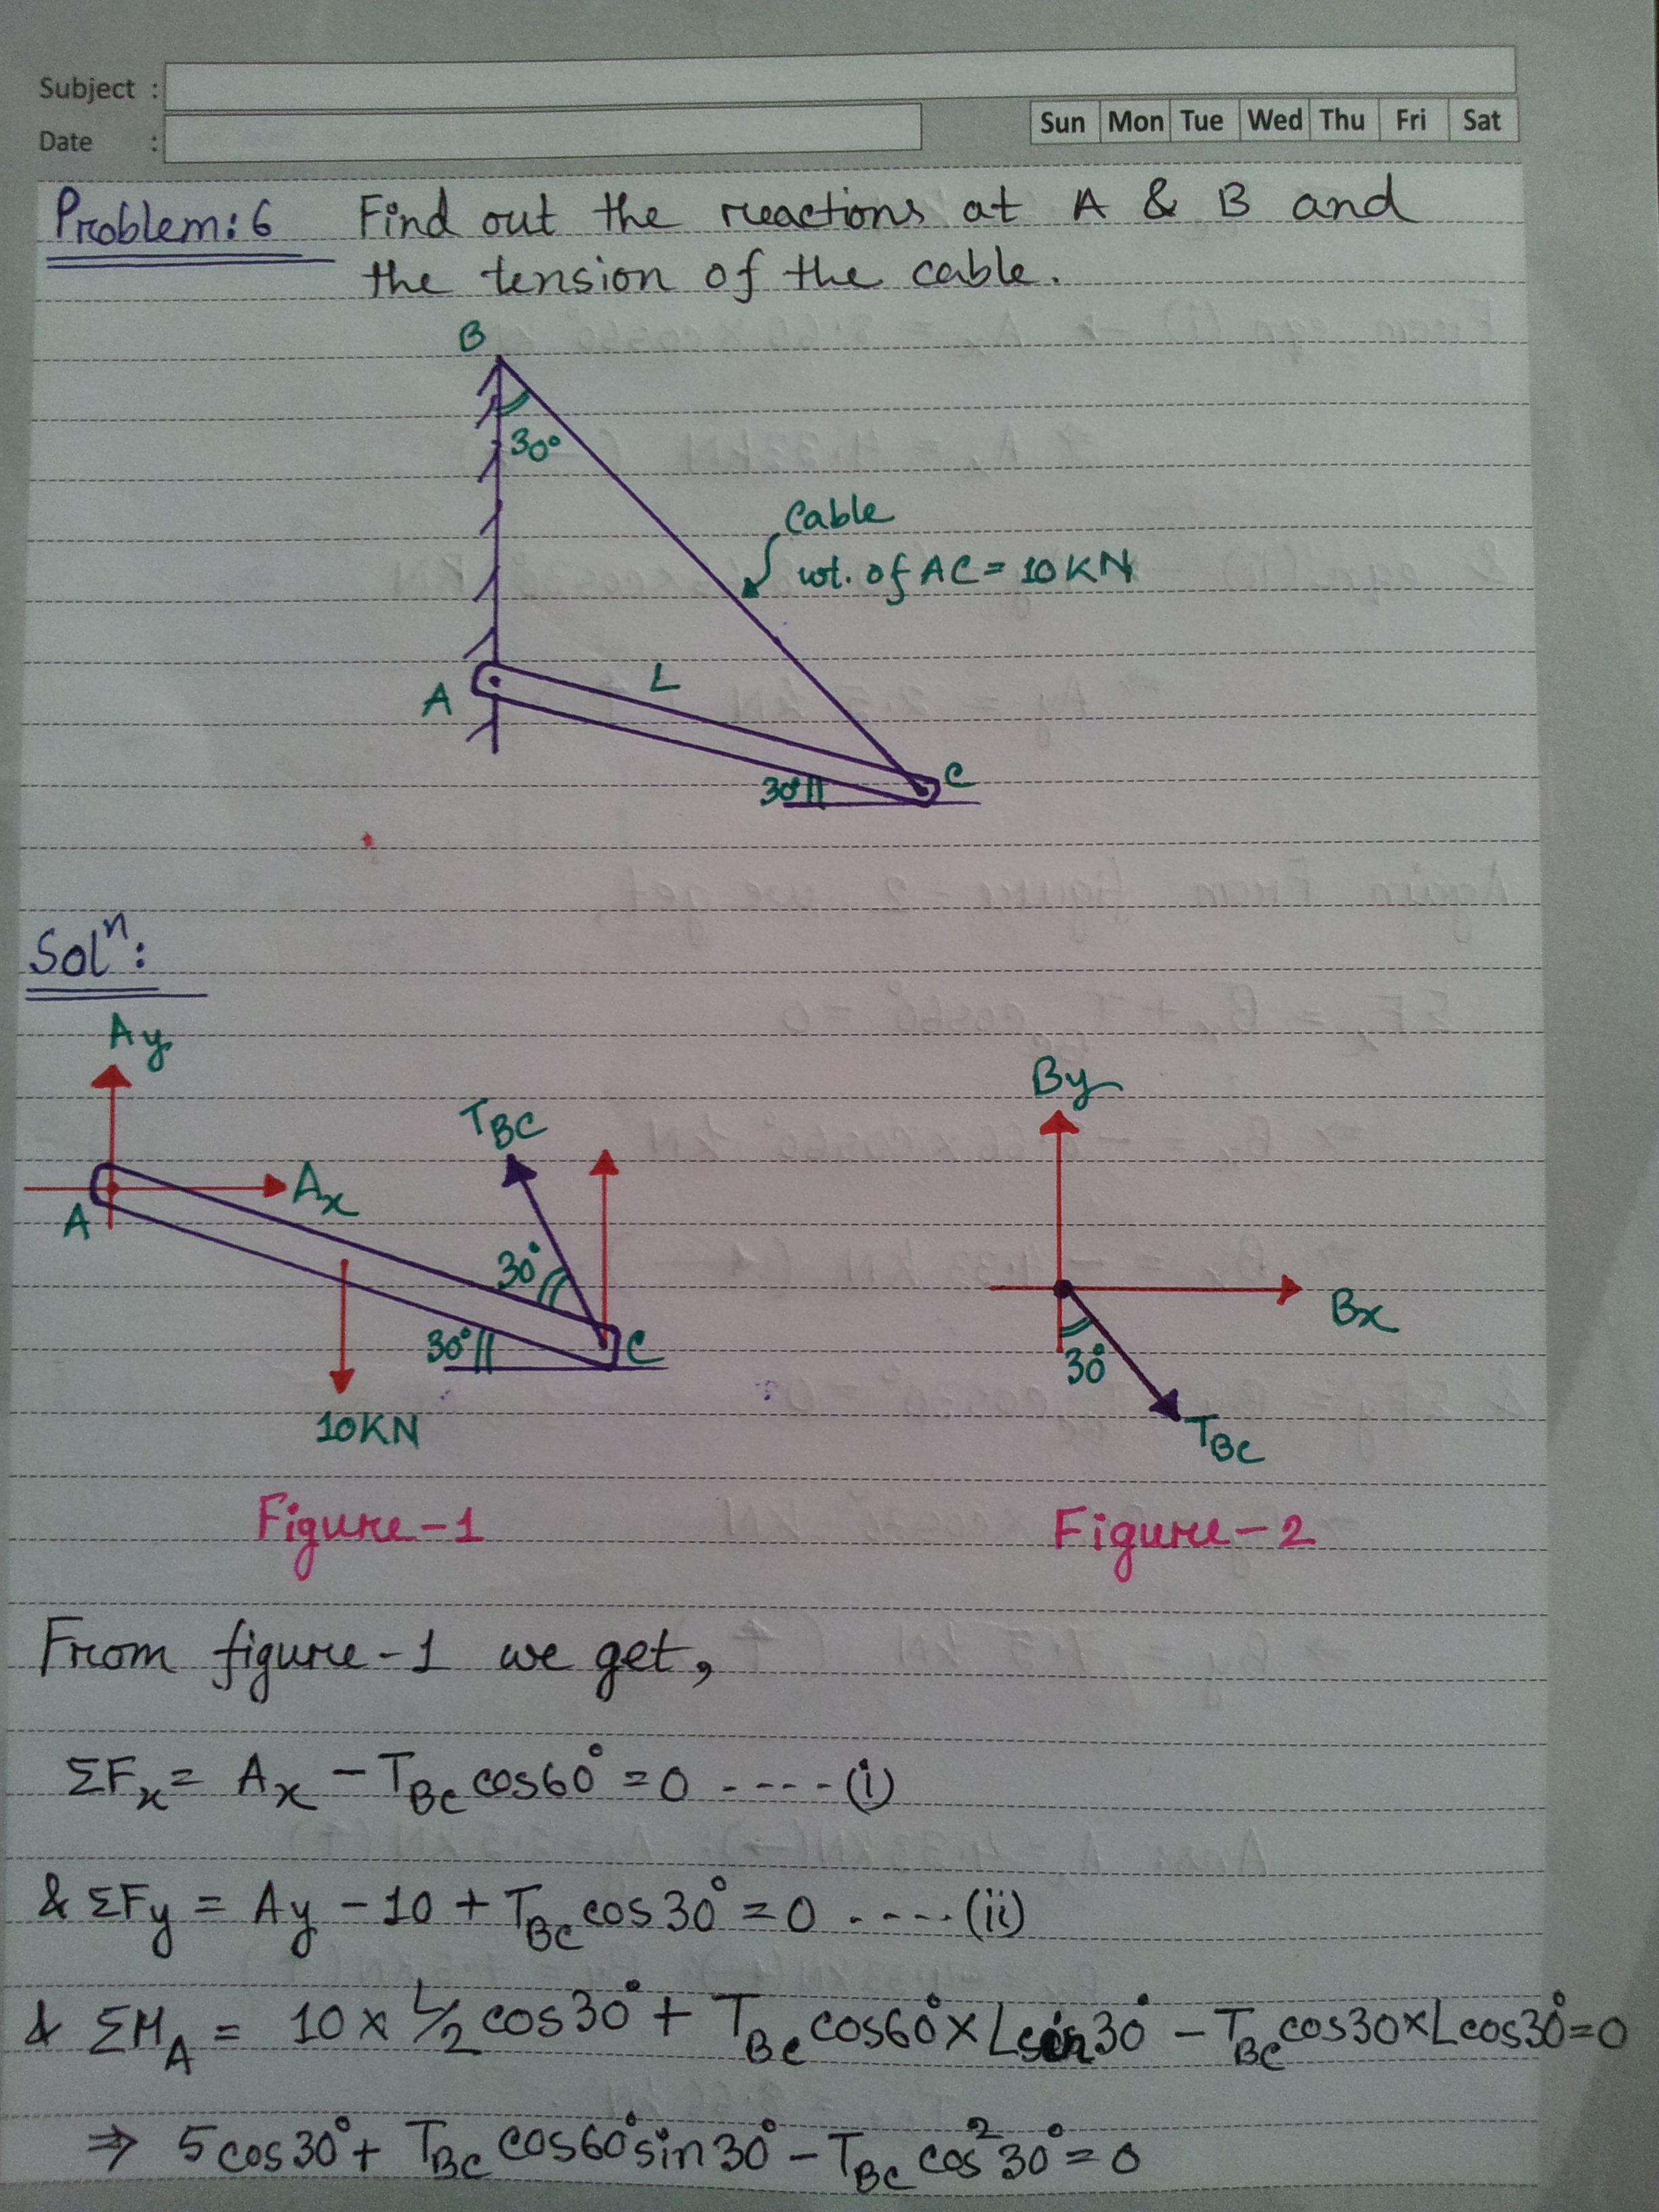 Subject :
Date :
Sun Mon Tue Wed Thu Fri Sat
Problem: 6 Find out the reactions at A & B and
the tension of the cable.
B
30°
Cable
wt. of AC = 10 KN
L
A
C
30°
Solⁿ:
Ay
By
T_BC
Ax
A
30°
Bx
30°
C
30°
10KN
T_BC
Figure-1
Figure-2
From figure-1 we get,
ΣFx = Ax - T_BC cos60° = 0 ----- (i)
& ΣFy = Ay - 10 + T_BC cos30° = 0 ----- (ii)
& ΣM_A = 10 × L/2 cos30° + T_BC cos60° × L sin30° - T_BC cos30 × L cos30° = 0
⇒ 5 cos30° + T_BC cos60° sin30° - T_BC cos²30° = 0